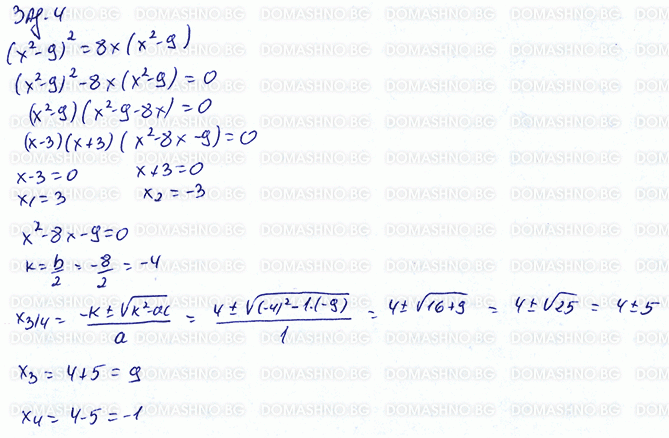 Зад. 4
(x²-9)² = 8x(x²-9)
(x²-9)² - 8x(x²-9) = 0
(x²-9)(x²-9-8x) = 0
(x-3)(x+3)(x²-8x-9) = 0
x-3=0 x+3=0
x₁=3 x₂=-3
x²-8x-9=0
k = b/2 = -8/2 = -4
x₃/₄ = (-k ± √(k²-ac))/a = (4 ± √((-4)²-1.(-9)))/1 = 4 ± √(16+9) = 4 ± √25 = 4 ± 5
x₃ = 4+5 = 9
x₄ = 4-5 = -1